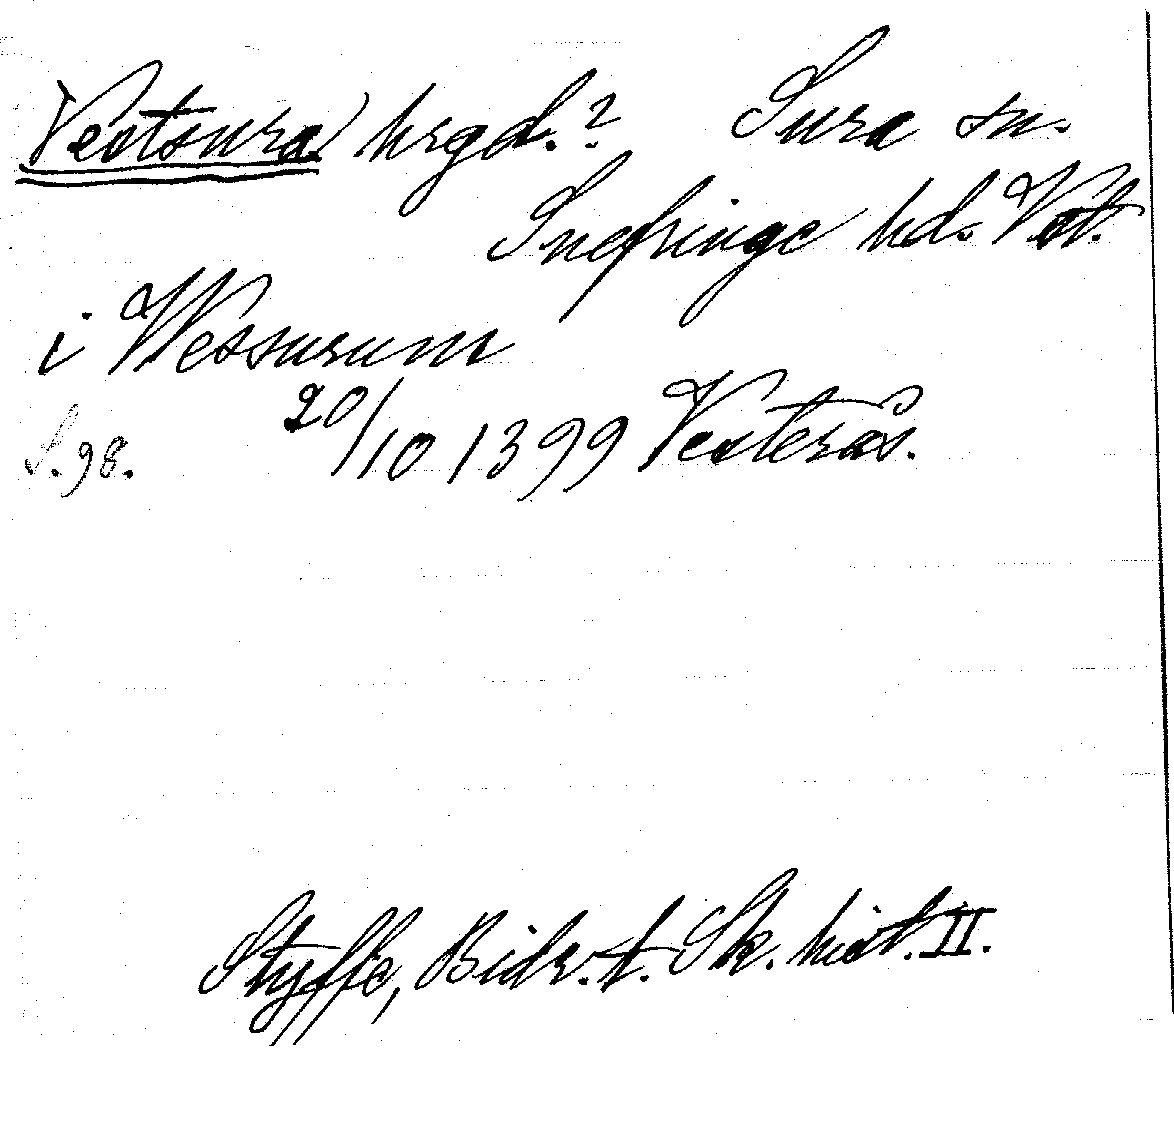 Vestsura hrgd.? Sura sn.
Snefringe hd. Vst.
i Wessurum
S. 98. 20/10 1399 Vesterås.
Styffe, Bidr. t. Sk. hist. II.